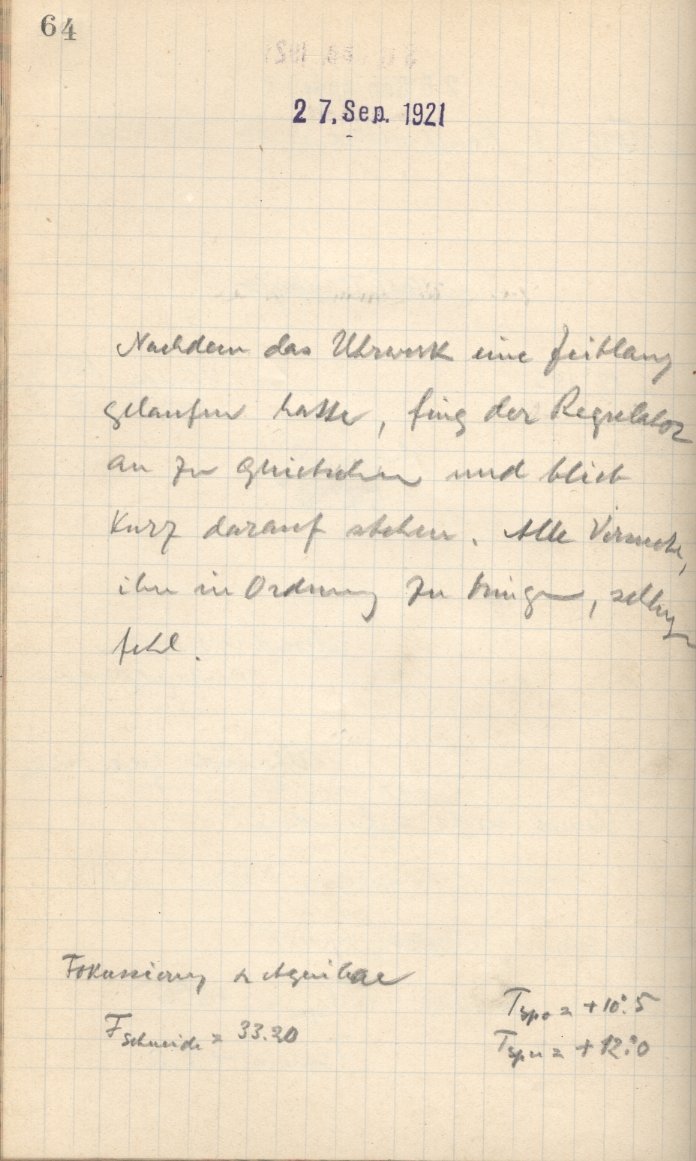 64
27. Sep. 1921
Nachdem das Uhrwerk eine Zeitlang
gelaufen hatte, fing der Regulator
an zu quietschen und blieb
kurz darauf stehen. Alle Versuche,
ihn in Ordnung zu bringen, schlugen
fehl.
Fokussierung α Aquilae
F Schneide = 33.20
T = +10°.5
T = +12°.0